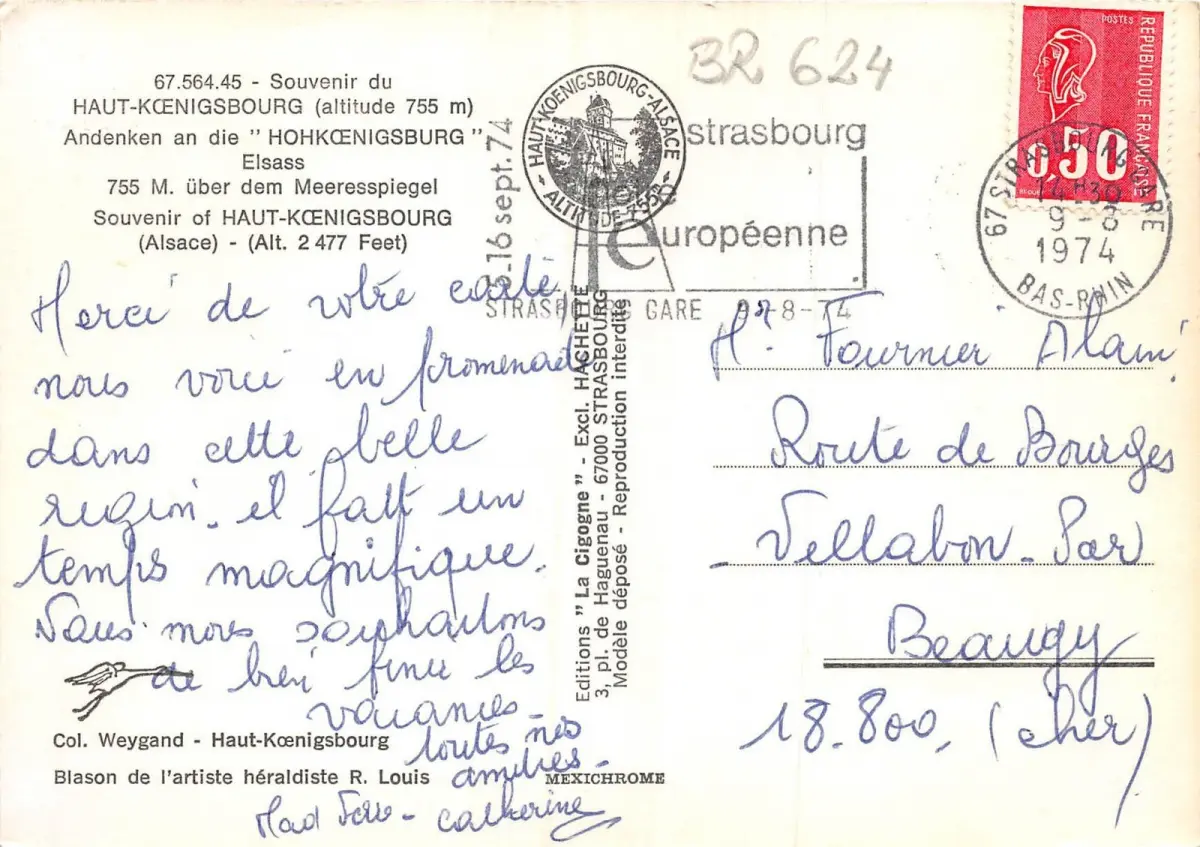 67.564.45 - Souvenir du
HAUT-KŒNIGSBOURG (altitude 755 m)
Andenken an die " HOHKŒNIGSBURG "
Elsass
755 M. über dem Meeresspiegel
Souvenir of HAUT-KŒNIGSBOURG
(Alsace) - (Alt. 2 477 Feet)
Merci de votre carte,
nous voici en promenade
dans cette belle
region. il fait un
temps magnifique.
Nous vous souhaitons
de bien finir les
vacances.
toutes nos
amitiés.
Catherine
Col. Weygand - Haut-Kœnigsbourg
Blason de l'artiste héraldiste R. Louis
MEXICHROME
Editions " La Cigogne " - Excl. HACHETTE
3, pl. de Haguenau - 67000 STRASBOURG
Modèle déposé - Reproduction interdite
HAUT-KOENIGSBOURG-ALSACE
ALTITUDE-755m
BR 624
16 sept. 74
strasbourg
européenne
STRASBOURG GARE 9-8-74
POSTES
REPUBLIQUE FRANÇAISE
0,50
67 STRASBOURG GARE
14H30
9-8
1974
BAS-RHIN
Mr. Fournier Alain
Route de Bourges
Villabon - Par
Beaugy
18.800. (cher)